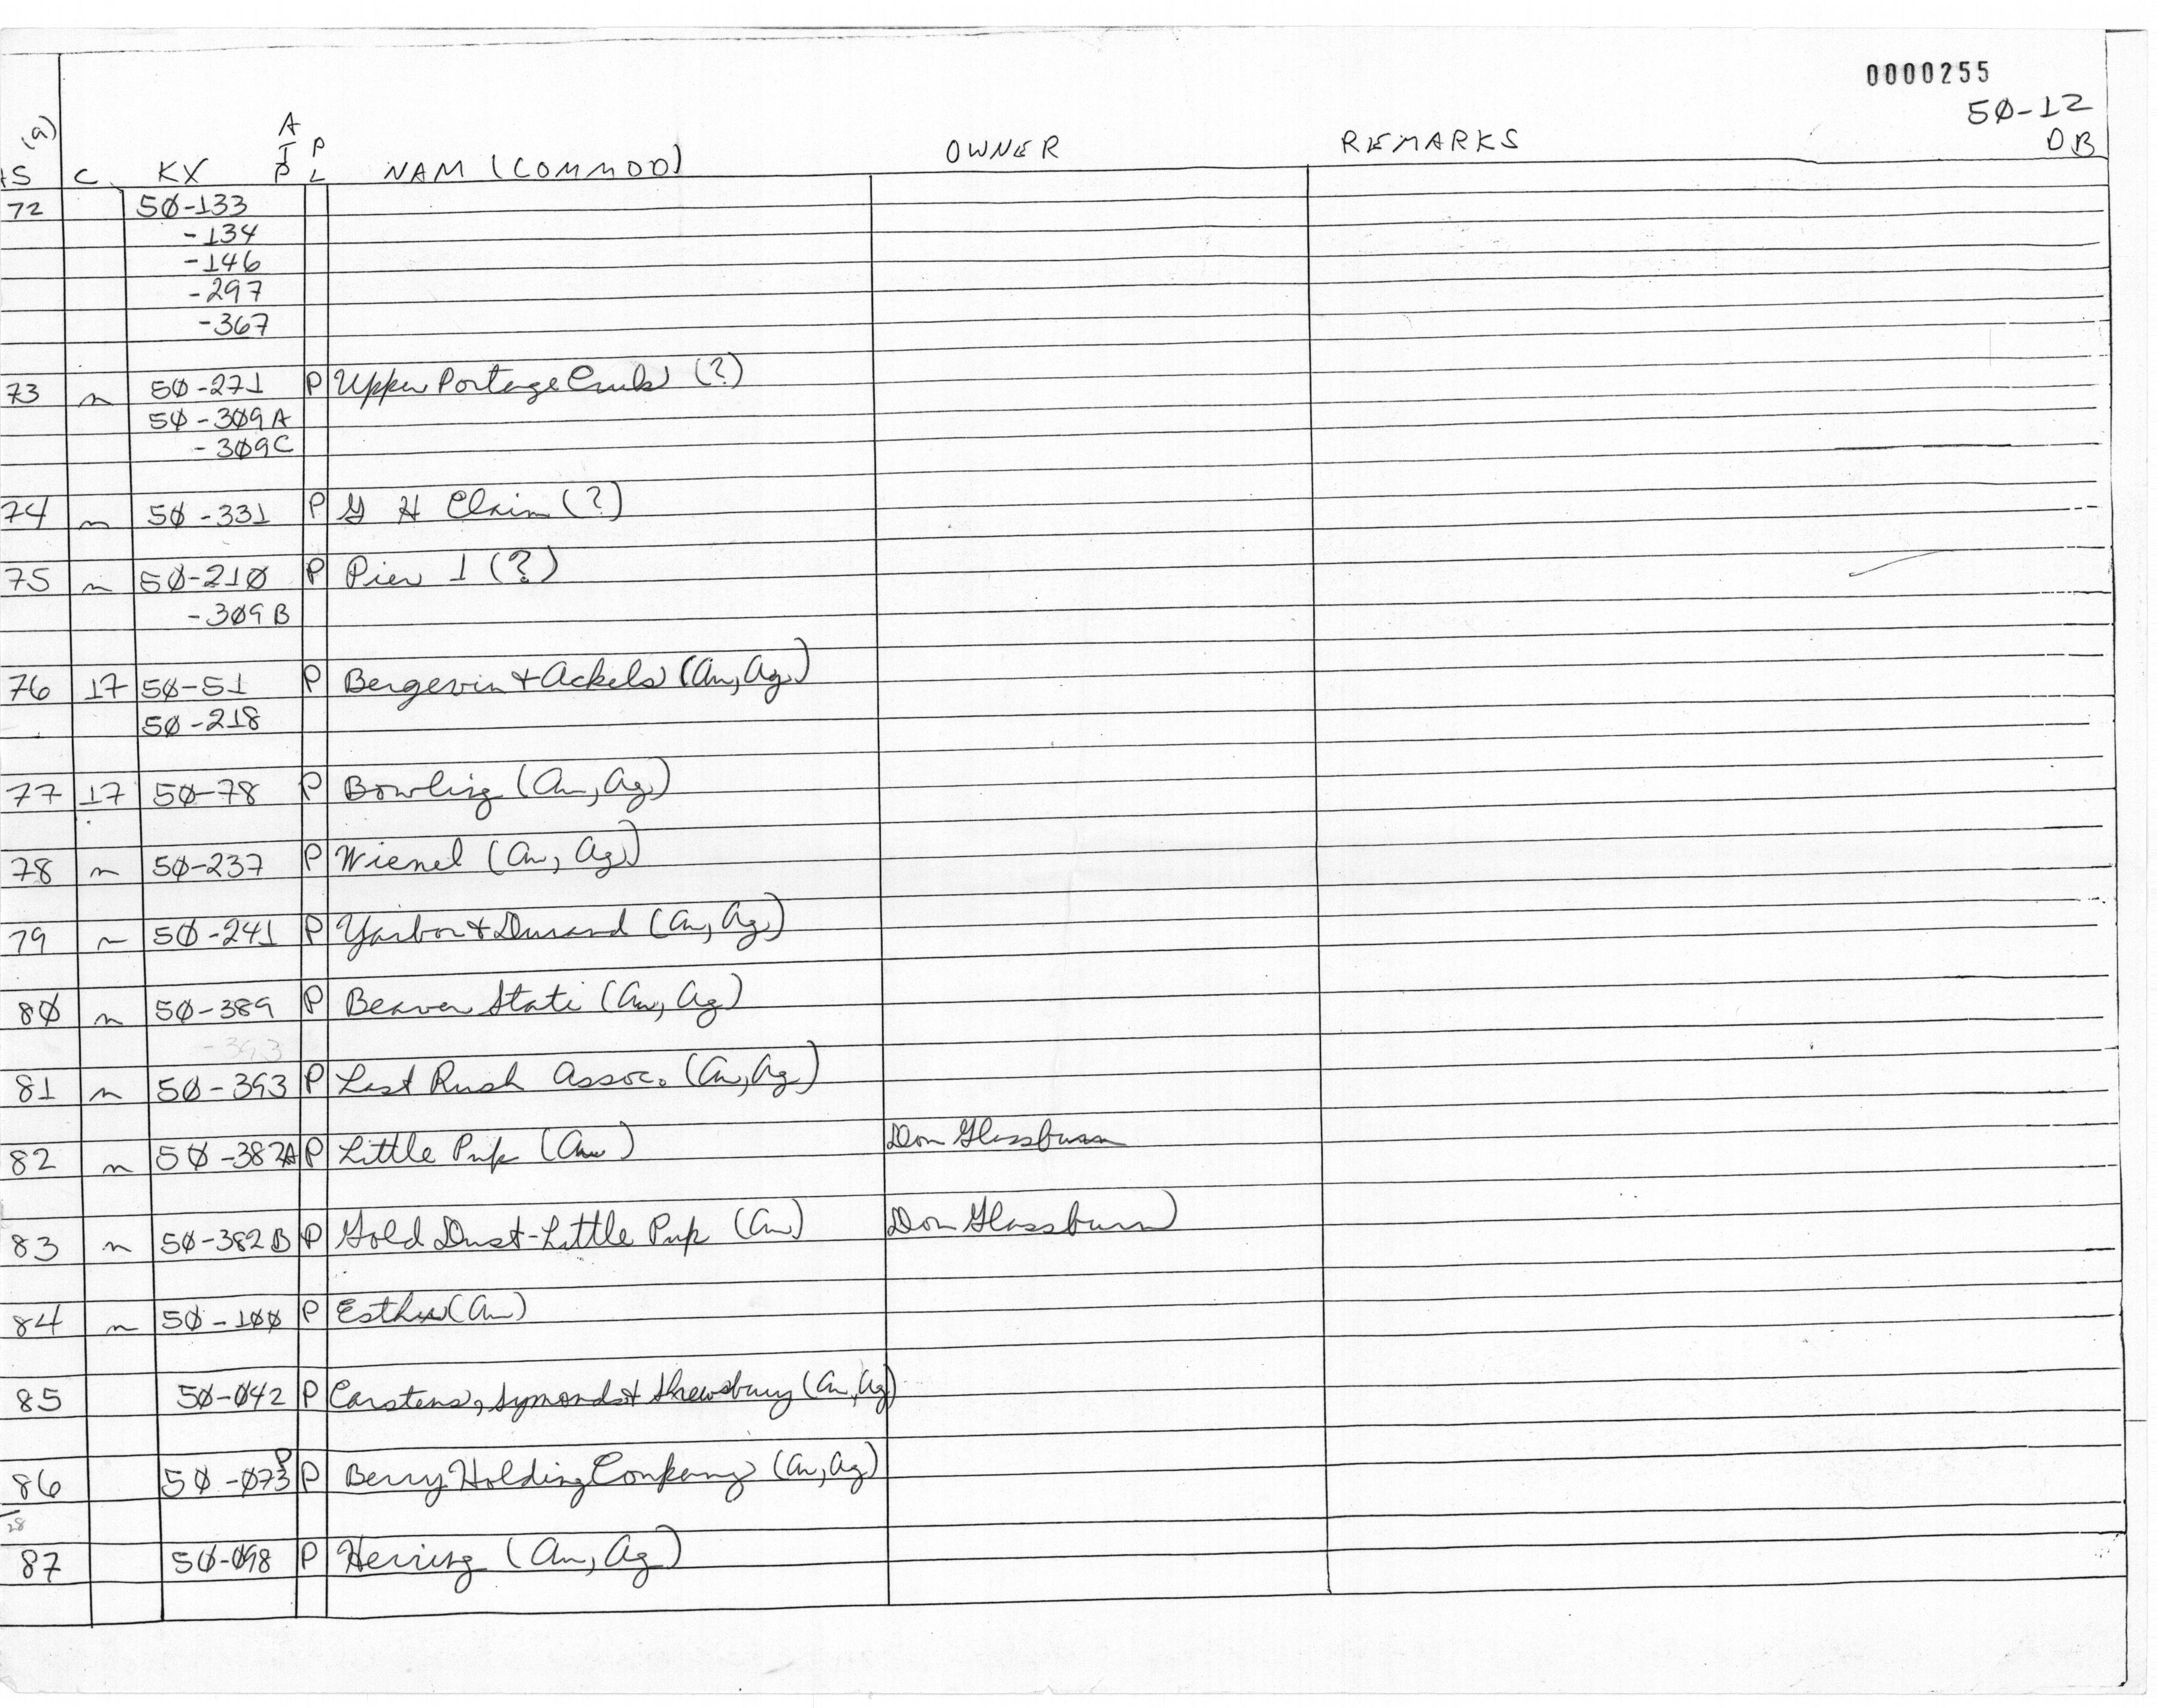 0000255
50-12
DB
(a)
S C KX A T P P L NAM (COMMOD) OWNER REMARKS
72 50-133
-134
-146
-297
-367
73 n 50-271 P Upper Portage Creek (?)
50-309A
-309C
74 n 50-331 P G H Claim (?)
75 n 50-210 P Pier 1 (?)
-309B
76 17 50-51 P Bergevin + Ackels (Au, Ag)
50-218
77 17 50-78 P Bowling (Au, Ag)
78 n 50-237 P Wienel (Au, Ag)
79 n 50-241 P Yarbor + Durand (Au, Ag)
80 n 50-389 P Beaver State (Au, Ag)
-393
81 n 50-393 P Last Rush Assoc. (Au, Ag)
82 n 50-382A P Little Pup (Au) Don Glassburn
83 n 50-382B P Gold Dust-Little Pup (Au) Don Glassburn
84 n 50-100 P Esther (Au)
85 50-042 P Carstens, Symonds + Shrewsbury (Au, Ag)
86 50-073 P P Berry Holding Company (Au, Ag)
28
87 50-098 P Herring (Au, Ag)